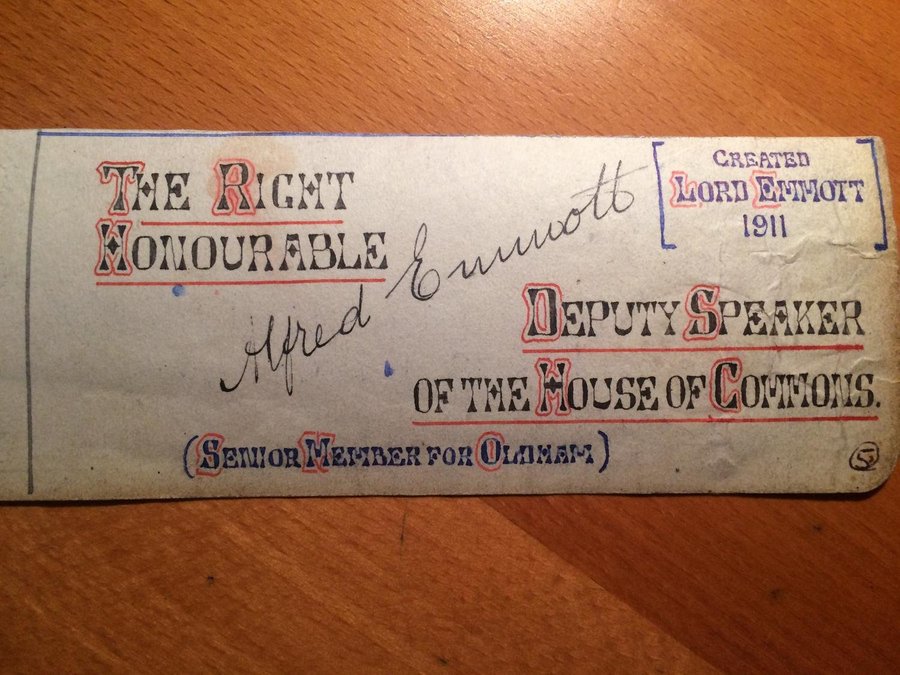 THE RIGHT
HONOURABLE
Alfred Emmott
CREATED
LORD EMMOTT
1911
DEPUTY SPEAKER
OF THE HOUSE OF COMMONS.
(SENIOR MEMBER FOR OLDHAM)
5